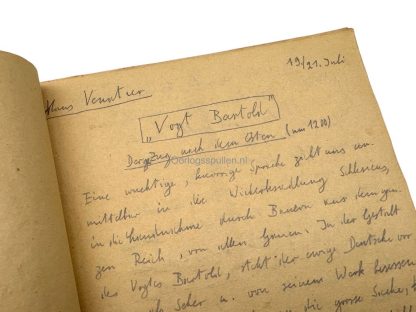 19/21. Juli
Hans Venatier
"Vogt Bartold"
Der Zug nach dem Osten (um 1200)
Oorlogsspullen.nl
Eine wuchtige, knorrige Sprache zieht uns un-
mittelbar in die Wiederbesiedlung Schlesiens,
in die Landnahme durch Bauern aus dem gan-
zen Reich, von allen Gauen. In der Gestalt
des Vogtes Bartold, steht der ewige Deutsche vor
u. von seinem Werk besessen
die grosse Sache,